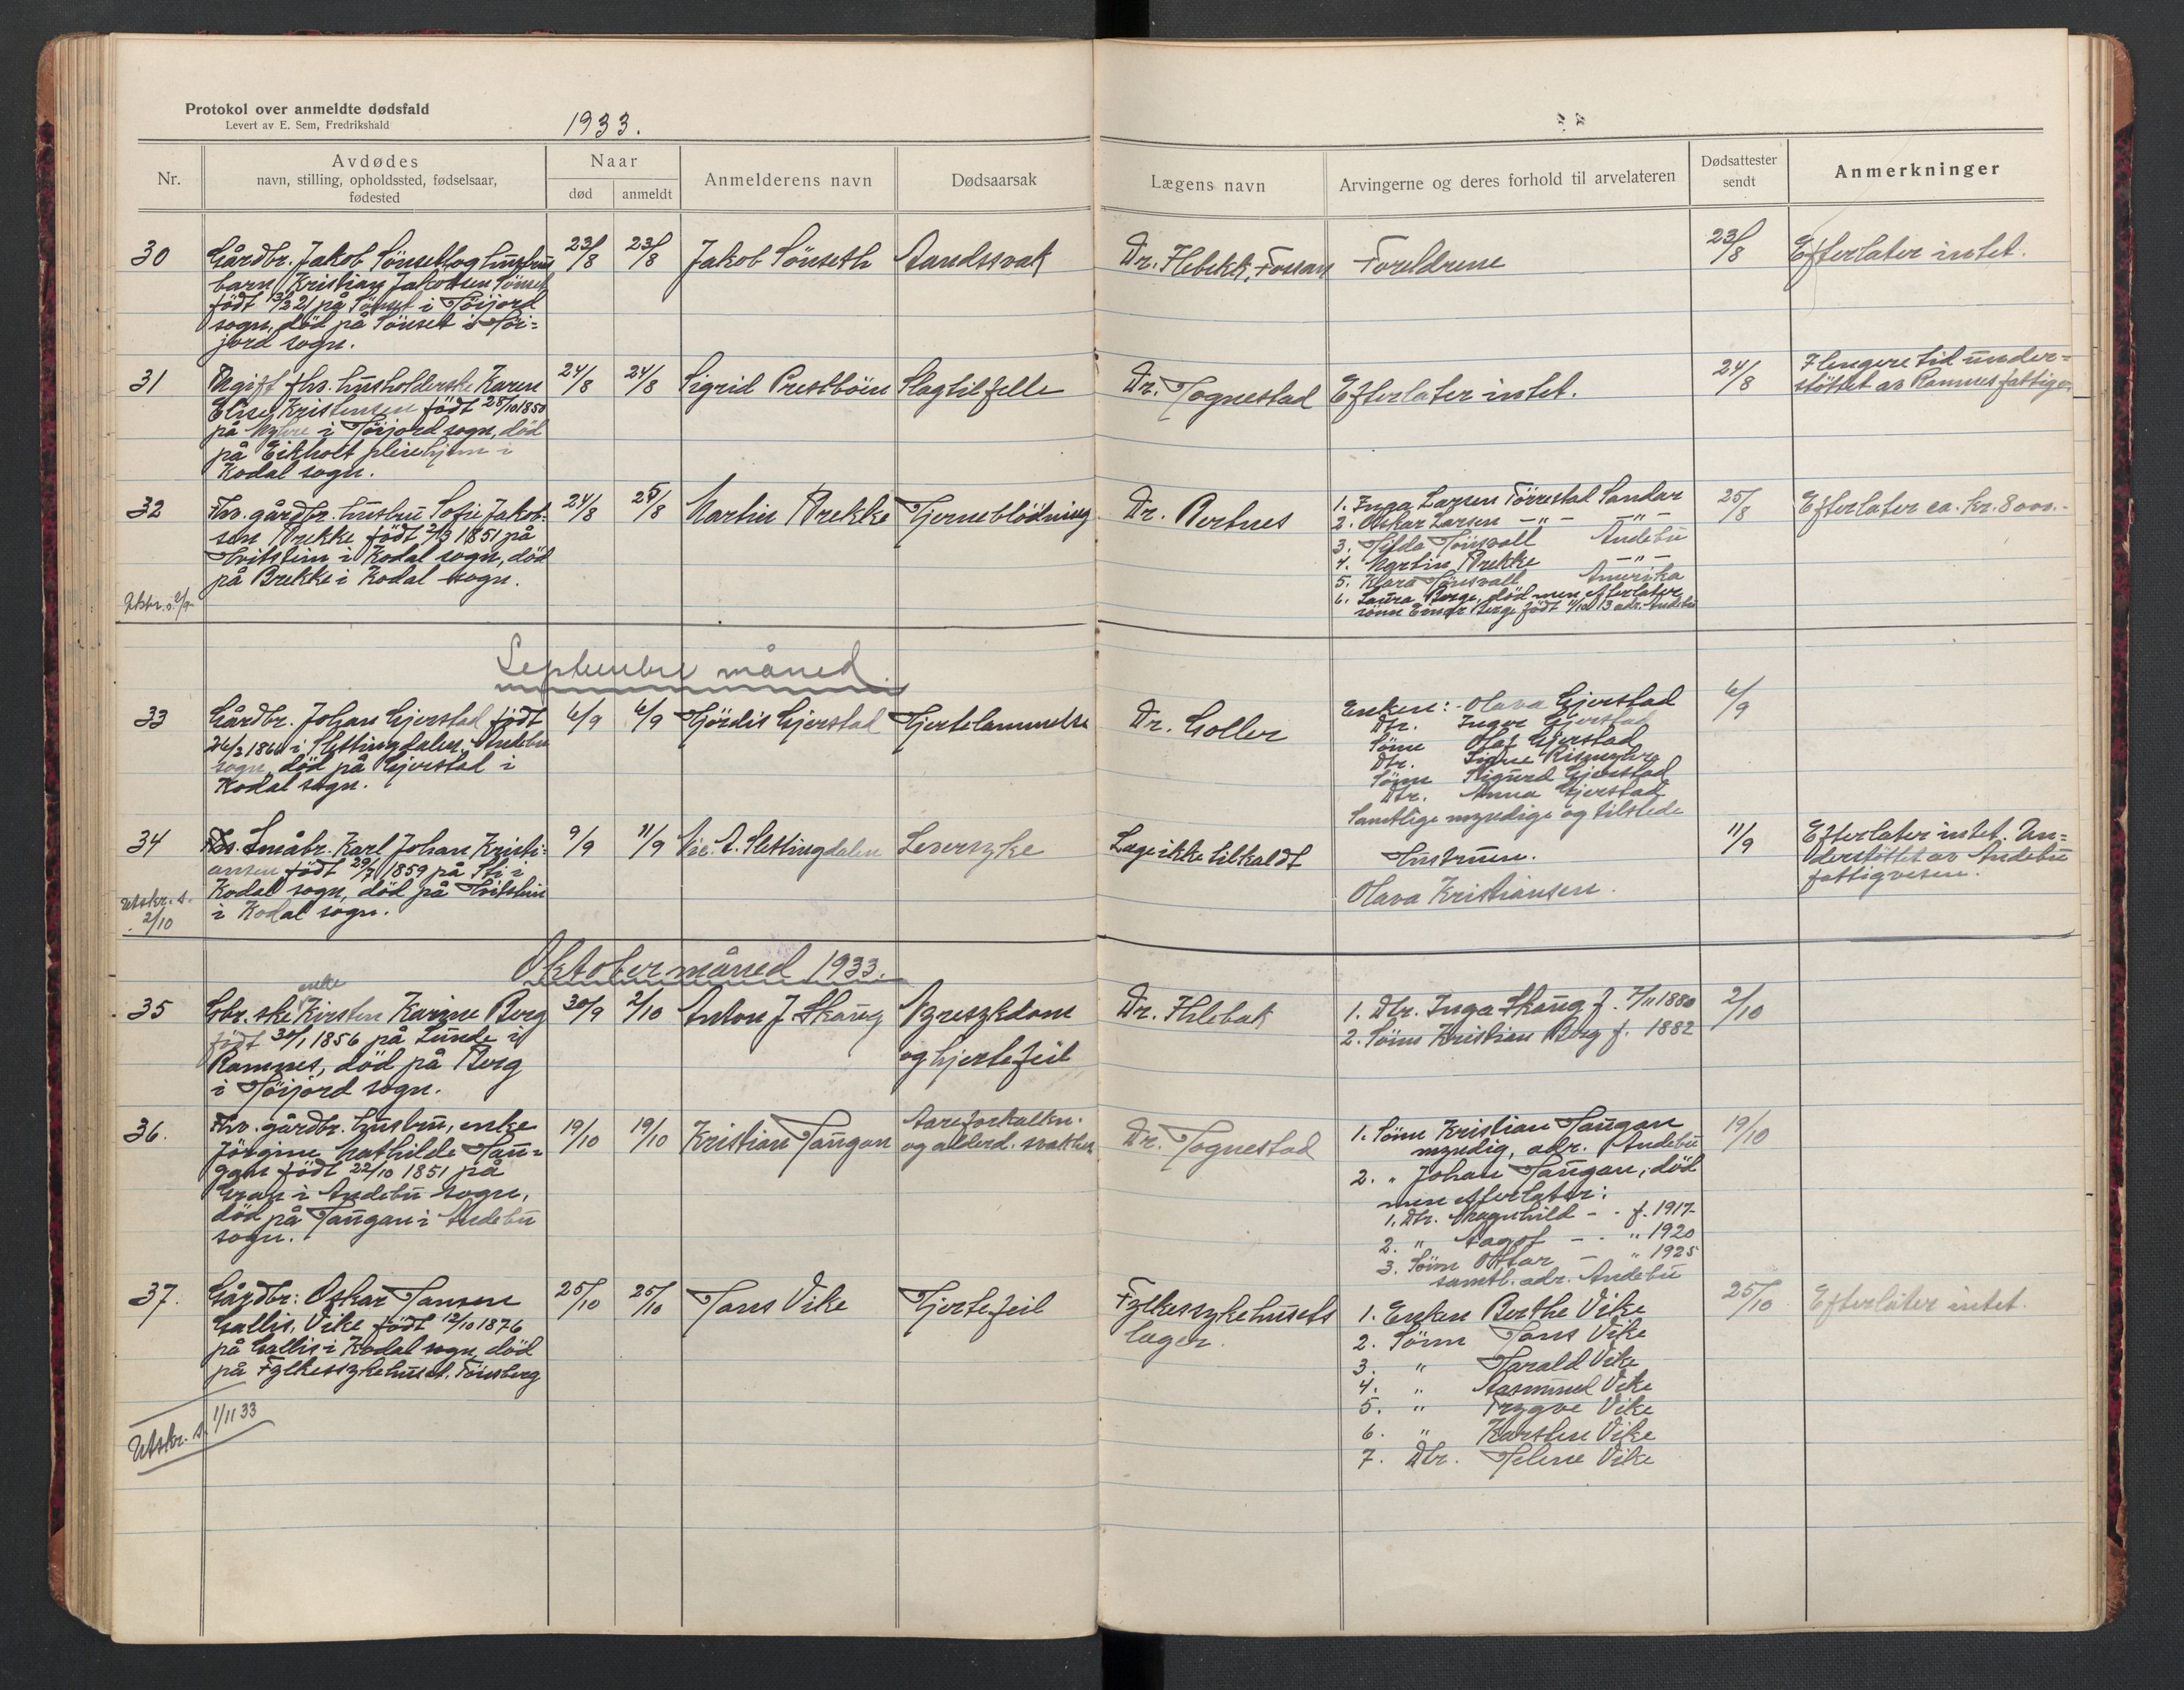 Protokol over anmeldte dødsfald
Levert av E. Sem, Fredrikshald
1933.
Nr.
Avdødes
navn, stilling, opholdssted, fødselsaar,
fødested
Naar
død
anmeldt
Anmelderens navn
Dødsaarsak
Lægens navn
Arvingerne og deres forhold til arvelateren
Dødsattester
sendt
Anmerkninger
30
Gårdbr. Jakob Sönset og hustrus
barn Kristian Jakobsen Sönset
født 21 på Sönset i Höijord
sogn, död på Sönset i Höi=
jord sogn.
23/8
23/8
Jakob Sönseth
Aandssvak
Dr. Fossan
Foreldrene
23/8
Efterlater intet.
31
Ugift fhv. husholderske Karen
Elise Kristensen født 28/10 1850
på i Höijord sogn, død
på Eikholt pleiehjem i
Kodal sogn.
24/8
24/8
Sigrid Prestböen
Slagtilfelle
Dr. Tognestad
Efterlater intet.
24/8
I lengere tid under=
støttet av Ramnes fattigv.
32
Fhv. gårdbr. hustru Sofie Jakob=
sen Brekke født 1851 på
Hvitstein i Kodal sogn, död
på Brekke i Kodal sogn.
Utskr. s. 2/9
24/8
25/8
Martin Brekke
Hjerneblödning
Dr. Bertnes
1. Inga Larsen Törrestad Sandar
2. Oskar Larsen —"— —"—
3. Hilda Hönsvall Andebu
4. Martin Brekke —"—
5. Klara Hönsvall Amerika
6. Laura Berge, död men efterlater
sönn Einar Berge født 13 adr. Andebu
25/8
Efterlater ca. kr. 800.-
September måned.
33
Gårdbr. Johan Gjerstad født
i Slettingdalen, Andebu
sogn, död på Gjerstad i
Kodal sogn.
6/9
6/9
Hjördis Gjerstad
Hjertelammelse
Dr. Goller
Enken: - Olava Gjerstad
Dtr. Inger Gjerstad
Sönn Olaf Gjerstad
Dtr. Signe
Sönn Sigurd Gjerstad
Dtr. Anna Gjerstad
Samtlige myndige og tilstede
6/9
34
Småbr. Karl Johan Kristi=
ansen født 1859 på Sti i
Kodal sogn, död på Hvitstein
i Kodal sogn.
Utskr. s.
2/10
9/9
11/9
A. Slettingdalen
Leversyke
Læge ikke tilkaldt
Hustruen.
Olava Kristiansen.
11/9
Efterlater intet. Un=
derstöttet av Andebu
fattigvesen.
Oktober måned 1933.
35
enke
Gbr. ske Kirsten Karine Berg
født 30/1 1856 på Lunde i
Ramnes, död på Berg
i Höijord sogn.
30/9
2/10
Anton J. Skaug
Nyresykdom
og hjertefeil
Dr.
1. Dtr. Inga Skaug f. 7/11 1880
2. Sönn Kristian Berg f. 1882
2/10
36.
Fhv. gårdbr. hustru, enke
Jörgine Mathilde Hau=
gan født 22/10 1851 på
i Andebu sogn,
död på Haugan i Andebu
sogn.
19/10
19/10
Kristian Haugan
Aareforkalkn.
og alderd. svakhet
Dr. Tognestad
1. Sönn Kristian Haugan
myndig, adr. Andebu
2. " Johan Haugan, död
men efterlater:
1. Dtr. Ragnhild - - f. 1917
2. " Aagot - - " 1920
3. Sönn Ottar - " 1925
samtl. adr. Andebu
19/10
37.
Gårdbr: Oskar Hansen
Gallis, Vike født 12/10 1876
på Gallis i Kodal sogn, död
på Fylkessykehuset, Tönsberg
25/10
25/10
Hans Vike
Hjertefeil
Fylkessykehusets
læger.
1. Enken Berthe Vike
2. Sönn Hans Vike
3. " Harald Vike
4. " Aasmund Vike
5. " Trygve Vike
6. " Karsten Vike
7. Dtr. Helene Vike
25/10
Efterlater intet.
Utskr. s. 1/11 33